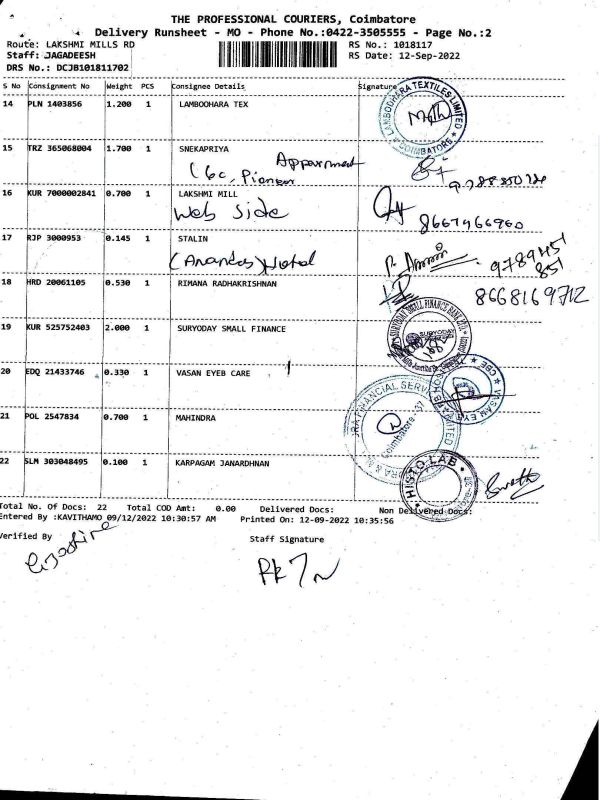 THE PROFESSIONAL COURIERS, Coimbatore
Delivery Runsheet - MO - Phone No.:0422-3505555 - Page No.:2
Route: LAKSHMI MILLS RD RS No.: 1018117
Staff: JAGADEESH RS Date: 12-Sep-2022
DRS No.: DCJB101811702
S No Consignment No Weight PCS Consignee Details Signature
14 PLN 1403856 1.200 1 LAMBODHARA TEX
LAMBODHARA TEXTILES LIMITED * COIMBATORE *
15 TRZ 365068004 1.700 1 SNEKAPRIYA
Appartment
16 KUR 7000002841 0.700 1 LAKSHMI MILL
Web Side 8667466960
17 RJP 3000953 0.145 1 STALIN
(Anandas) Hotel 9789451
851
18 HRD 20061105 0.530 1 RIMANA RADHAKRISHNAN
8668169712
19 KUR 525752403 2.000 1 SURYODAY SMALL FINANCE
SURYODAY SMALL FINANCE BANK LTD
SURYODAY
20 EDQ 21433746 0.330 1 VASAN EYEB CARE
21 POL 2547834 0.700 1 MAHINDRA
FINANCIAL SERV LIMITED
Coimbatore - 37
22 SLM 303048495 0.100 1 KARPAGAM JANARDHNAN
HISTO LAB
Total No. Of Docs: 22 Total COD Amt: 0.00 Delivered Docs: Non Delivered Docs:
Entered By :KAVITHAMO 09/12/2022 10:30:57 AM Printed On: 12-09-2022 10:35:56
Verified By Staff Signature